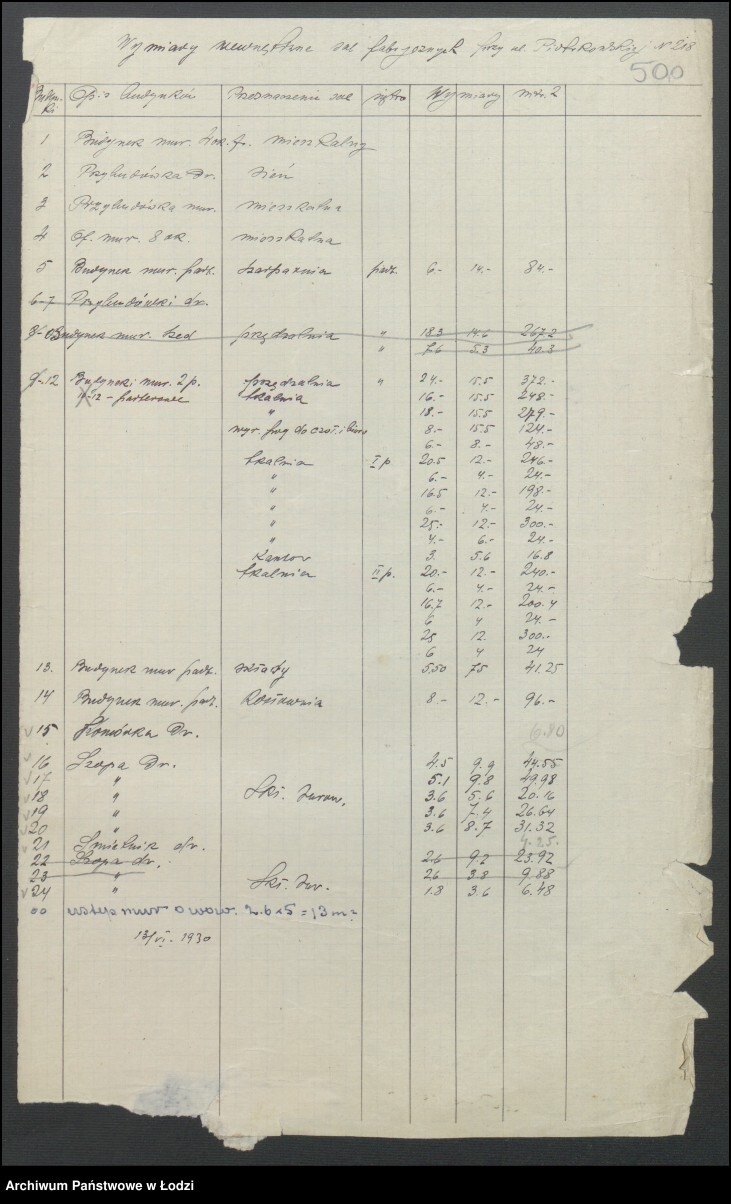 Wymiary wewnętrzne sal fabrycznych przy ul. Piotrkowskiej N 218
500
Opis budynków Przeznaczenie sal piętro Wymiary mtr. 2
1 Budynek mur. fr. mieszkalny
2 Przybudówka Dr. sień
3 Przybudówka mur. mieszkalna
4 Of. mur. mieszkalna
5 Budynek mur. part. szarparnia part. 6.- 14.- 84.-
6-7 Przybudówki dr.
Budynek mur. szed przędzalnia " 18.3 14.6 267.2
" 7.6 5.3 40.3
9-12 Budynek mur. 2 p. przędzalnia " 24.- 15.5 372.-
11-12 - parterowe tkalnia 16.- 15.5 248.-
" 18.- 15.5 279.-
8.- 15.5 124.-
6.- 8.- 48.-
tkalnia I p 20.5 12.- 246.-
" 6.- 4.- 24.-
" 16.5 12.- 198.-
" 6.- 4.- 24.-
" 25.- 12.- 300.-
" 4.- 6.- 24.-
Kantor 3. 5.6 16.8
tkalnia II p. 20.- 12.- 240.-
6.- 4.- 24.-
16.7 12.- 200.4
6 4 24.-
25 12. 300.-
6 4 24
13. Budynek mur part. składy 5.50 75 41.25
14 Budynek mur. part. Kotłownia 8.- 12.- 96.-
15 Komórka Dr. 6.80
16 Szopa Dr. 4.5 9.9 44.55
17 " 5.1 9.8 49.98
18 " Skł. surow. 3.6 5.6 20.16
19 " 3.6 7.4 26.64
20 " 3.6 8.7 31.32
21 Śmietnik dr.
22 Szopa dr. 2.6 9.2 23.92
23 " 26 3.8 9.88
24 " Skł. sur. 1.8 3.6 6.48
00 ustęp mur 2.6x5 = 13 m²
13/VI. 1930
Archiwum Państwowe w Łodzi